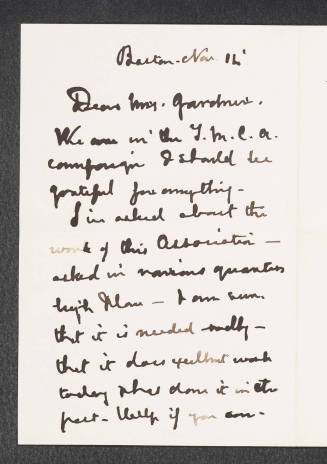 Boston. Nov. 14
Dear Mrs. Gardner.
We are in the Y. M. C. A.
campaign I should be
grateful for anything -
I've asked about the
work of this Association -
asked in various quarters
high & low - & am sure
that it is needed sadly -
that it does excellent work
today & has done it in the
past - Help if you can -